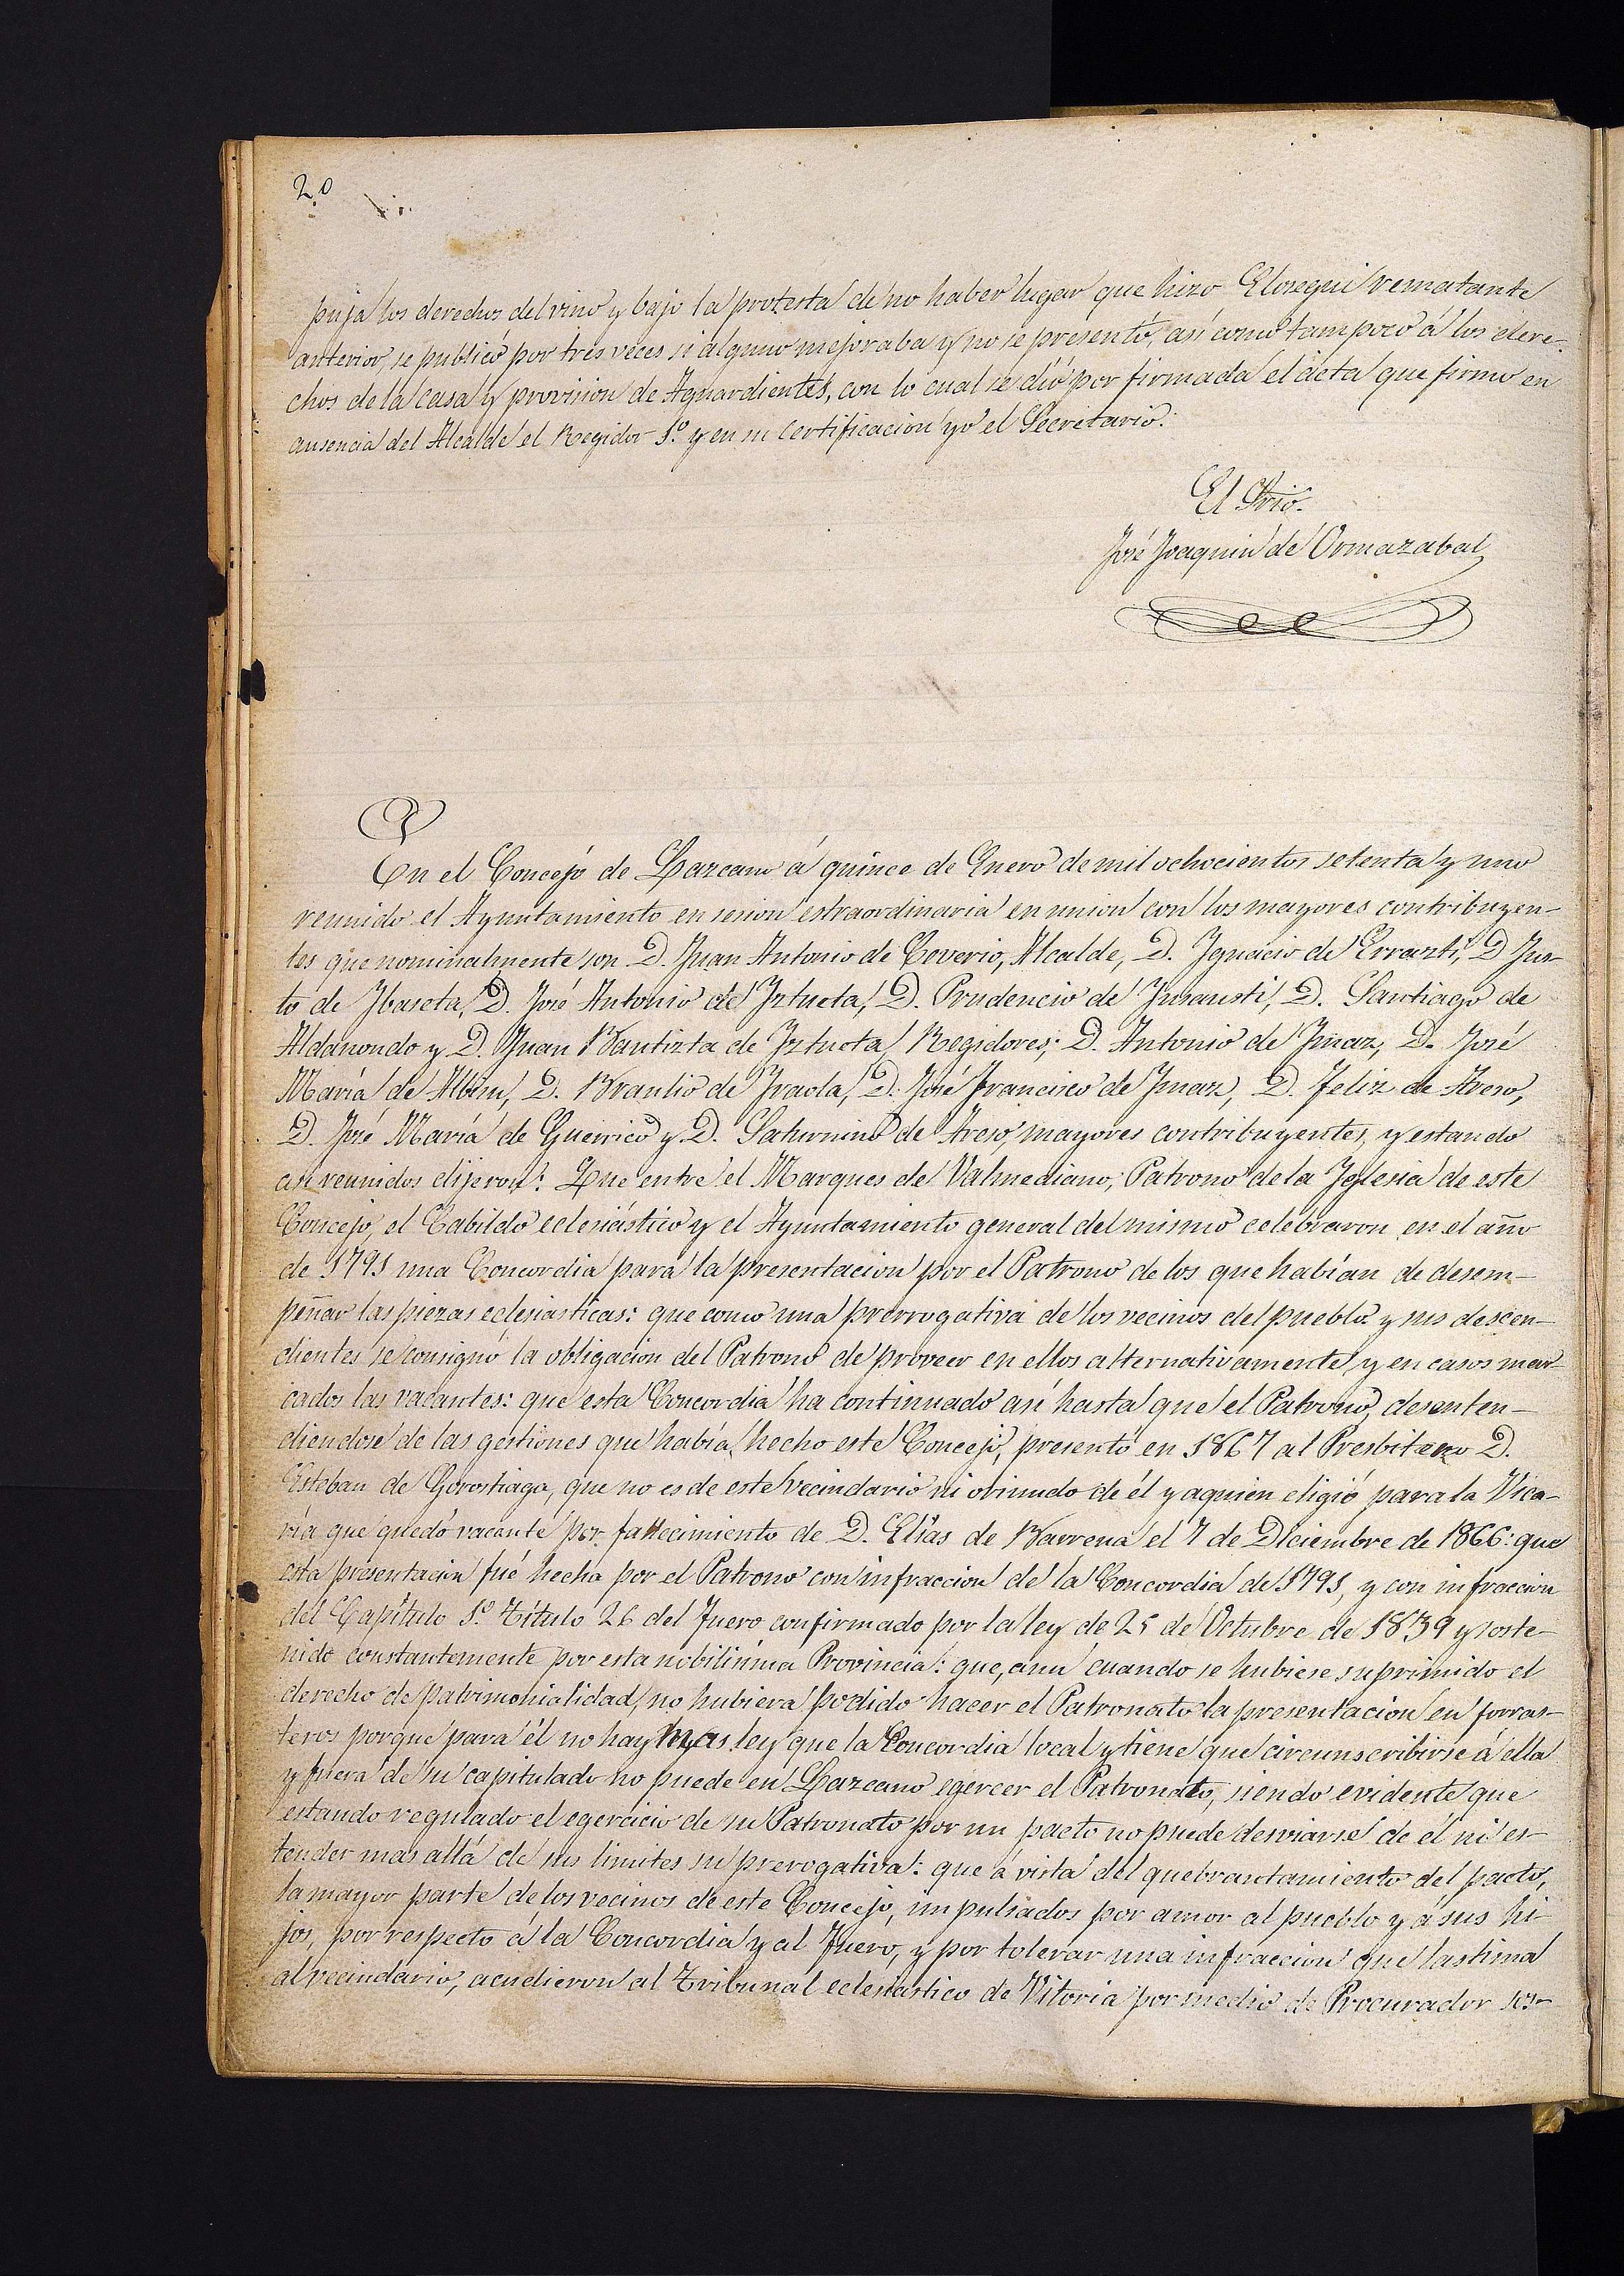 20
puja los derechos del vino y bajo la protesta de no haber lugar que hizo Elosegui rematante
anterior, se publicó por tres veces si alguno mejoraba y no se presentó, así como tampoco á los dere-
chos de la casa y provision de Aguardientes, con lo cual se dió por firmada el acta que firmo en
ausencia del Alcalde el Regidor 1º y en su certificacion yo el Secretario.
El Srio.
José Joaquin de Ormazabal
En el Concejo de Lazcano á quince de Enero de mil ochocientos setenta y uno
reunido el Ayuntamiento en sesion estraordinaria en union con los mayores contribuyen-
tes que nominalmente son D. Juan Antonio de Coverio, Alcalde, D. Ignacio de Errazti, D Jus-
to de Ybaseta, D. José Antonio de Iztueta, D. Prudencio de Insausti, D. Santiago de
Aldanondo y D. Juan Bautizta de Iztueta Regidores; D. Antonio de Ymaz, D. José
María de Albin, D. Braulio de Iraola, D. José Francisco de Ymaz, D. Feliz de Areso,
D. José María de Guerrico y D. Saturnino de Areso, mayores contribuyentes, y estando
asi reunidos dijeron: Que entre el Marques de Valmediano, Patrono de la Yglesia de este
Concejo, el Cabildo eclesiástico y el Ayuntamiento general del mismo celebraron en el año
de 1791 una Concordia para la presentacion por el Patrono de los que habían de desem-
peñar las piezas eclesiasticas: que como una prerrogativa de los vecinos del pueblo y sus descen-
dientes se consignó la obligacion del Patrono de proveer en ellos alternativamente y en casos mar-
cados las vacantes: que esta Concordia ha continuado así hasta que el Patrono, desenten-
diendose de las gestiones que había hecho este Concejo, presentó en 1867 al Presbitero D.
Esteban de Gorostiaga, que no es de este vecindario ni oriundo de él y aquien eligió para la Vica-
ría que quedó vacante por fallecimiento de D. Elías de Barrena el 7 de Diciembre de 1866: que
esta presentacion fué hecha por el Patrono con infraccion de la Concordia de 1791, y con infraccion
del Capítulo 1º Título 26 del Fuero confirmado por la ley de 25 de Octubre de 1839 y soste-
nido constantemente por esta nobilísima Provincia: que, aun cuando se hubiese suprimido el
derecho de patrimonialidad, no hubiera podido hacer el Patronato la presentacion en forras-
teros porque para él no hay mas ley que la Concordia local y tiene que circunscribirse á ella
y fuera de su capitulado no puede en Lazcano egercer el Patronato, siendo evidente que
estando regulado el egercicio de su Patronato por un pacto no puede desviarse de él ni es-
tender mas allá de sus limites su prerogativa: que á vista del quebrantamiento del pacto,
la mayor parte de los vecinos de este Concejo, impulsados por amor al pueblo y á sus hi-
jos, por respecto á la Concordia y al Fuero, y por tolerar una infraccion que lastima
al vecindario, acudieron al Tribunal eclesiastico de Vitoria por medio de Procurador sos-